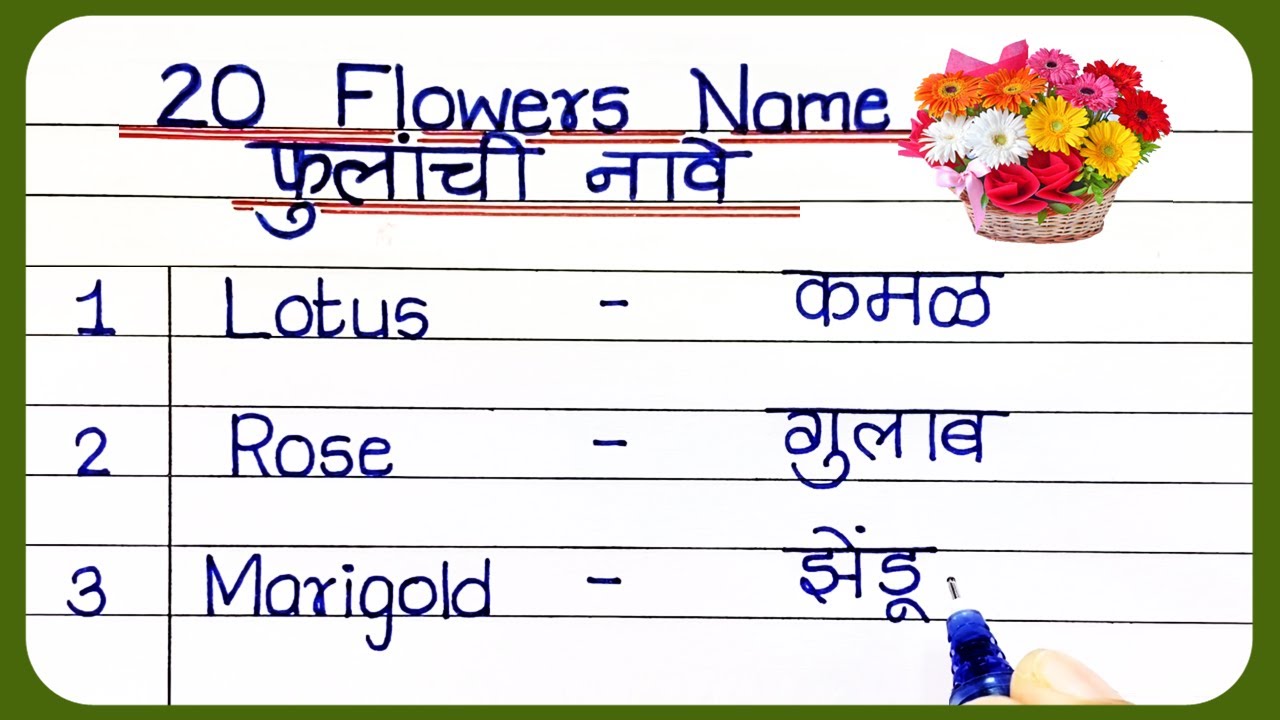 20 Flowers Name
फुलांची नावे
1 Lotus - कमळ
2 Rose - गुलाब
3 Marigold - झेंडू